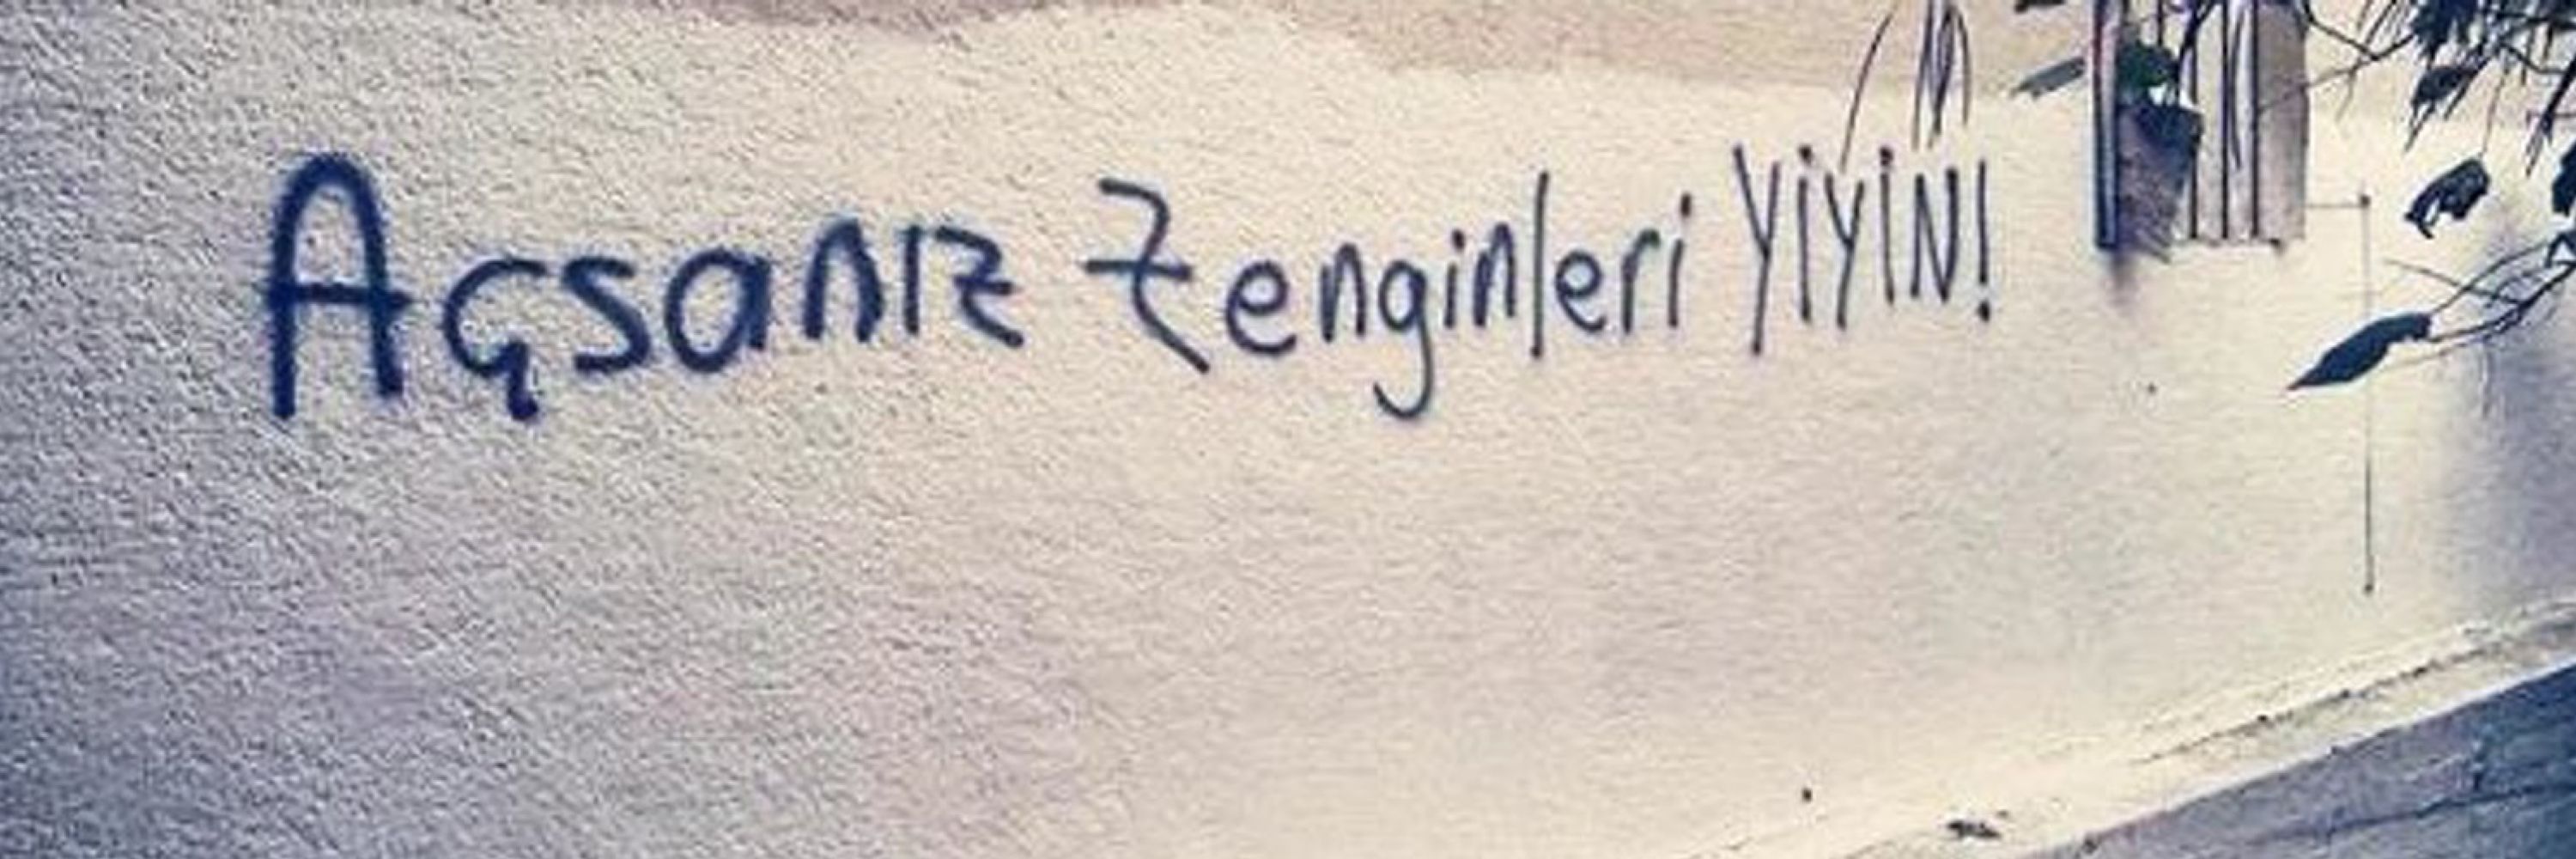 Açsanız Zenginleri YİYİN!